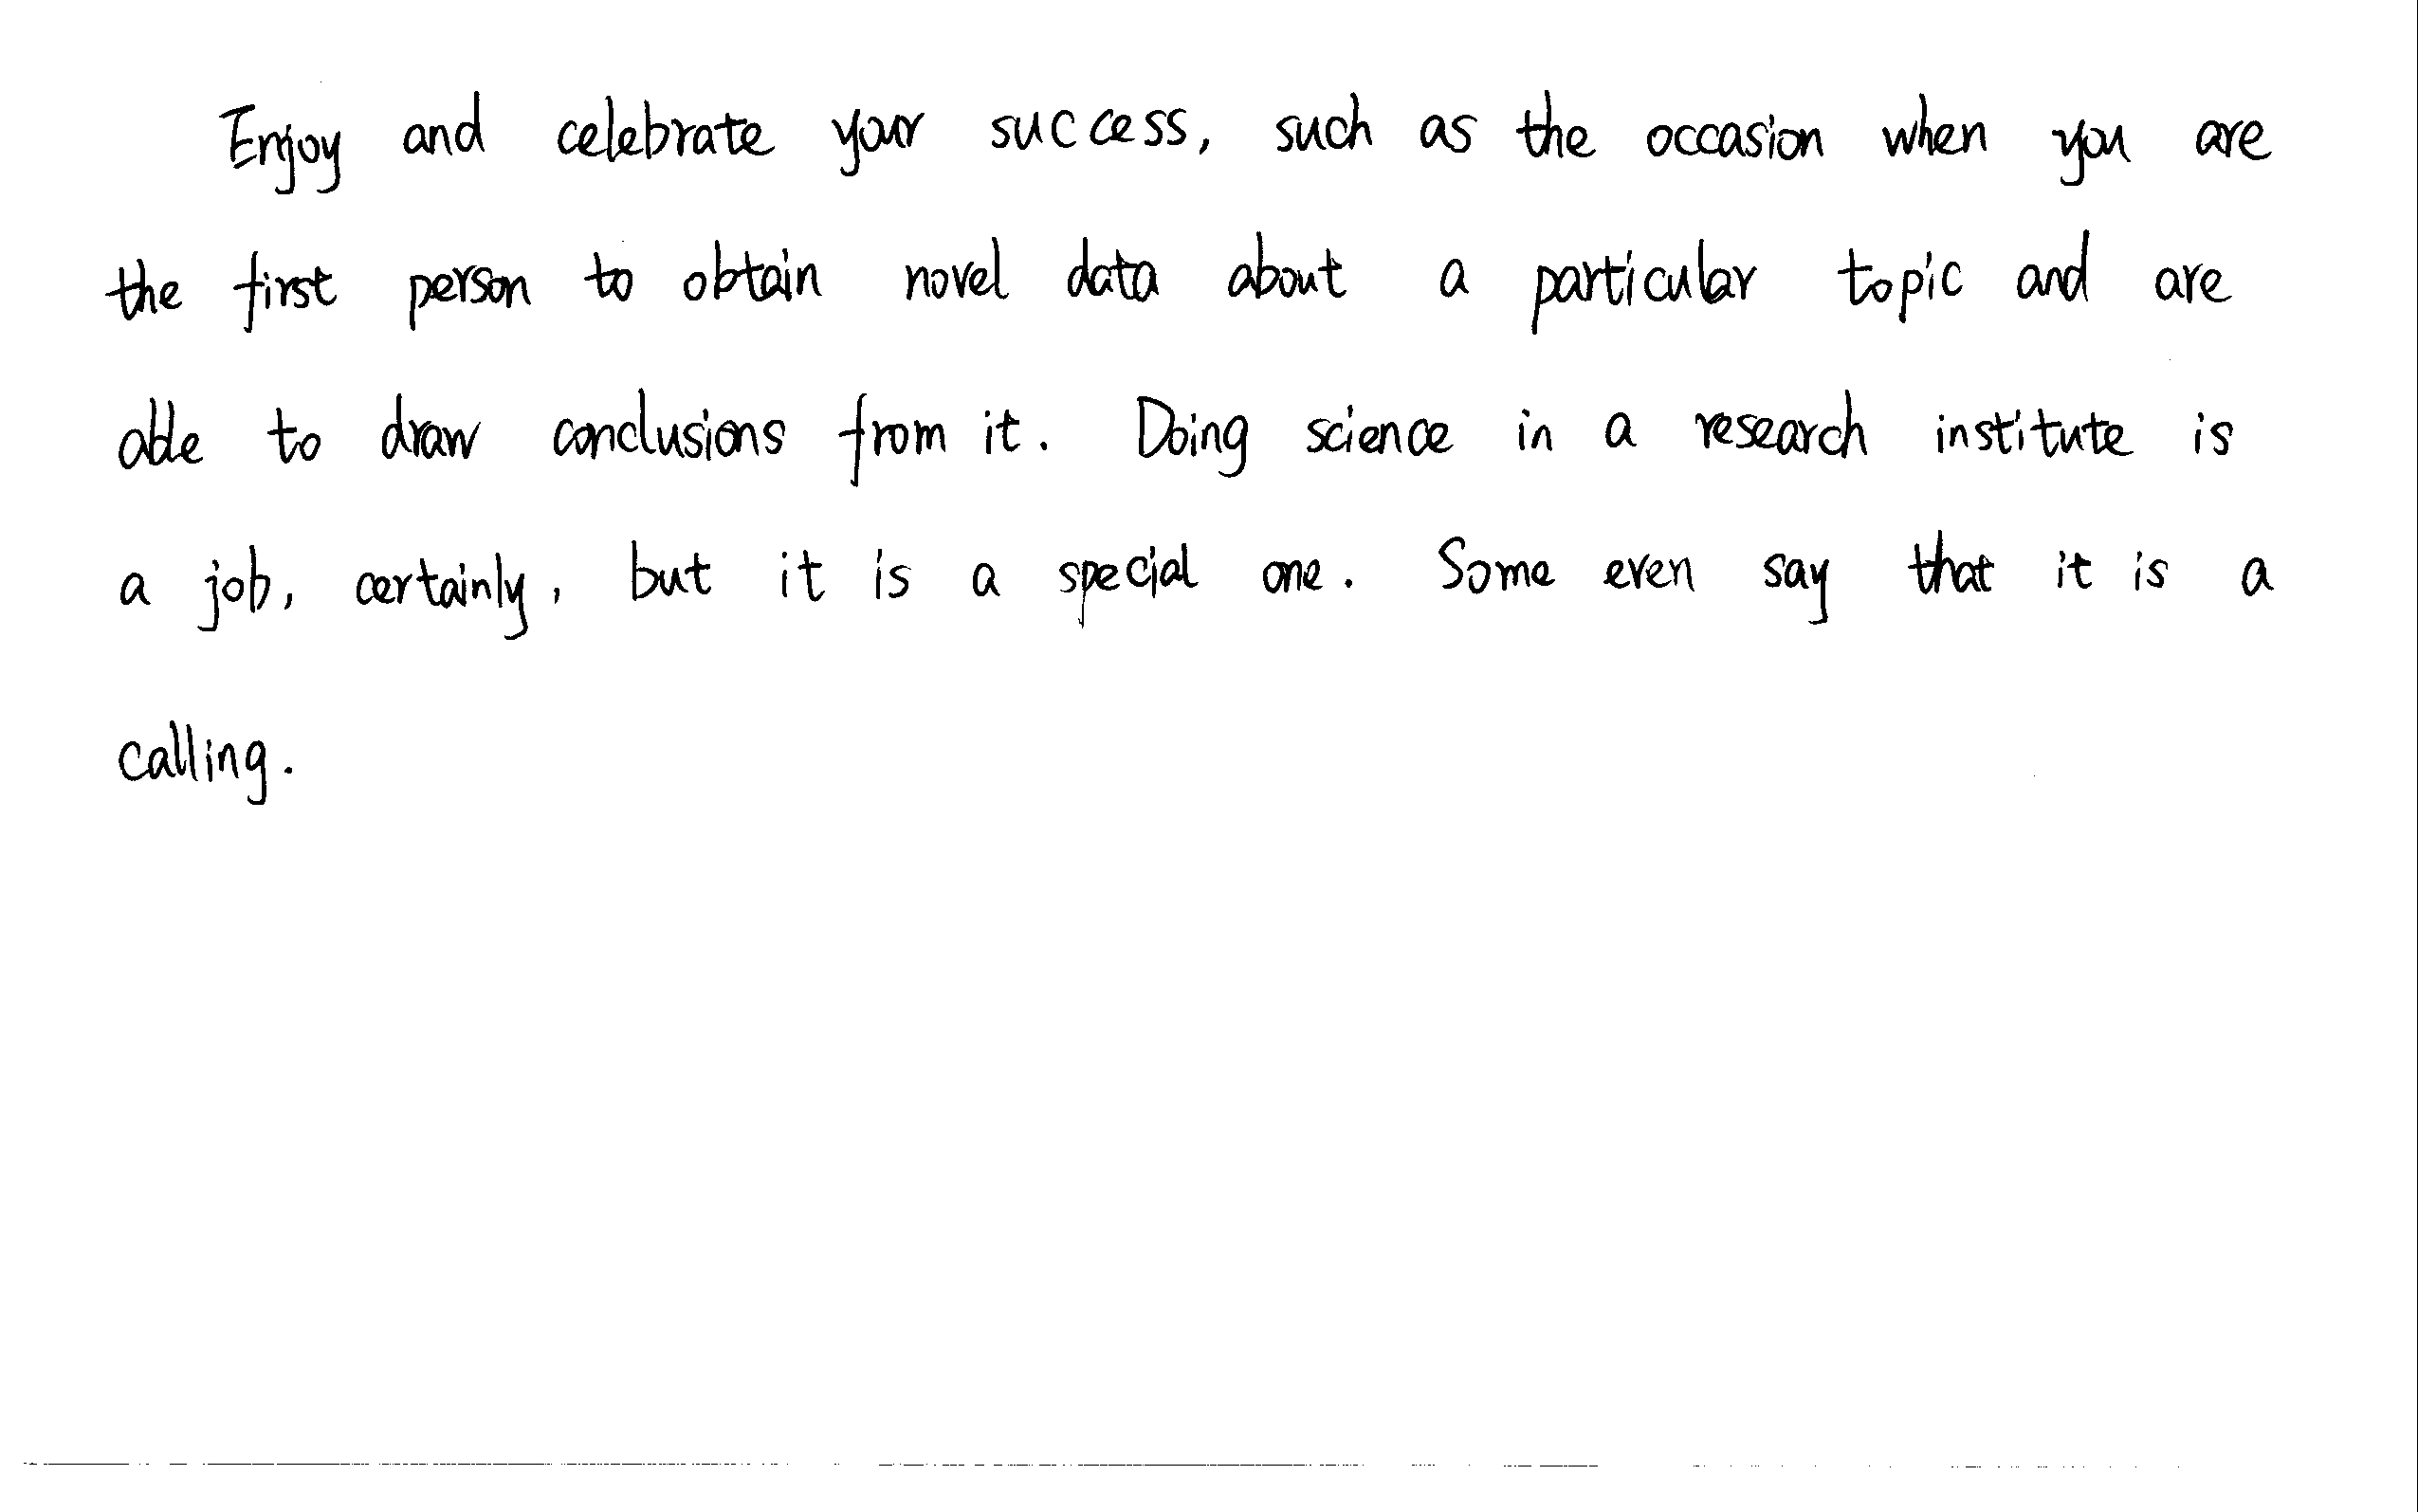 Enjoy and celebrate your success, such as the occasion when you are
the first person to obtain novel data about a particular topic and are
able to draw conclusions from it. Doing science in a research institute is
a job, certainly, but it is a special one. Some even say that it is a
calling.